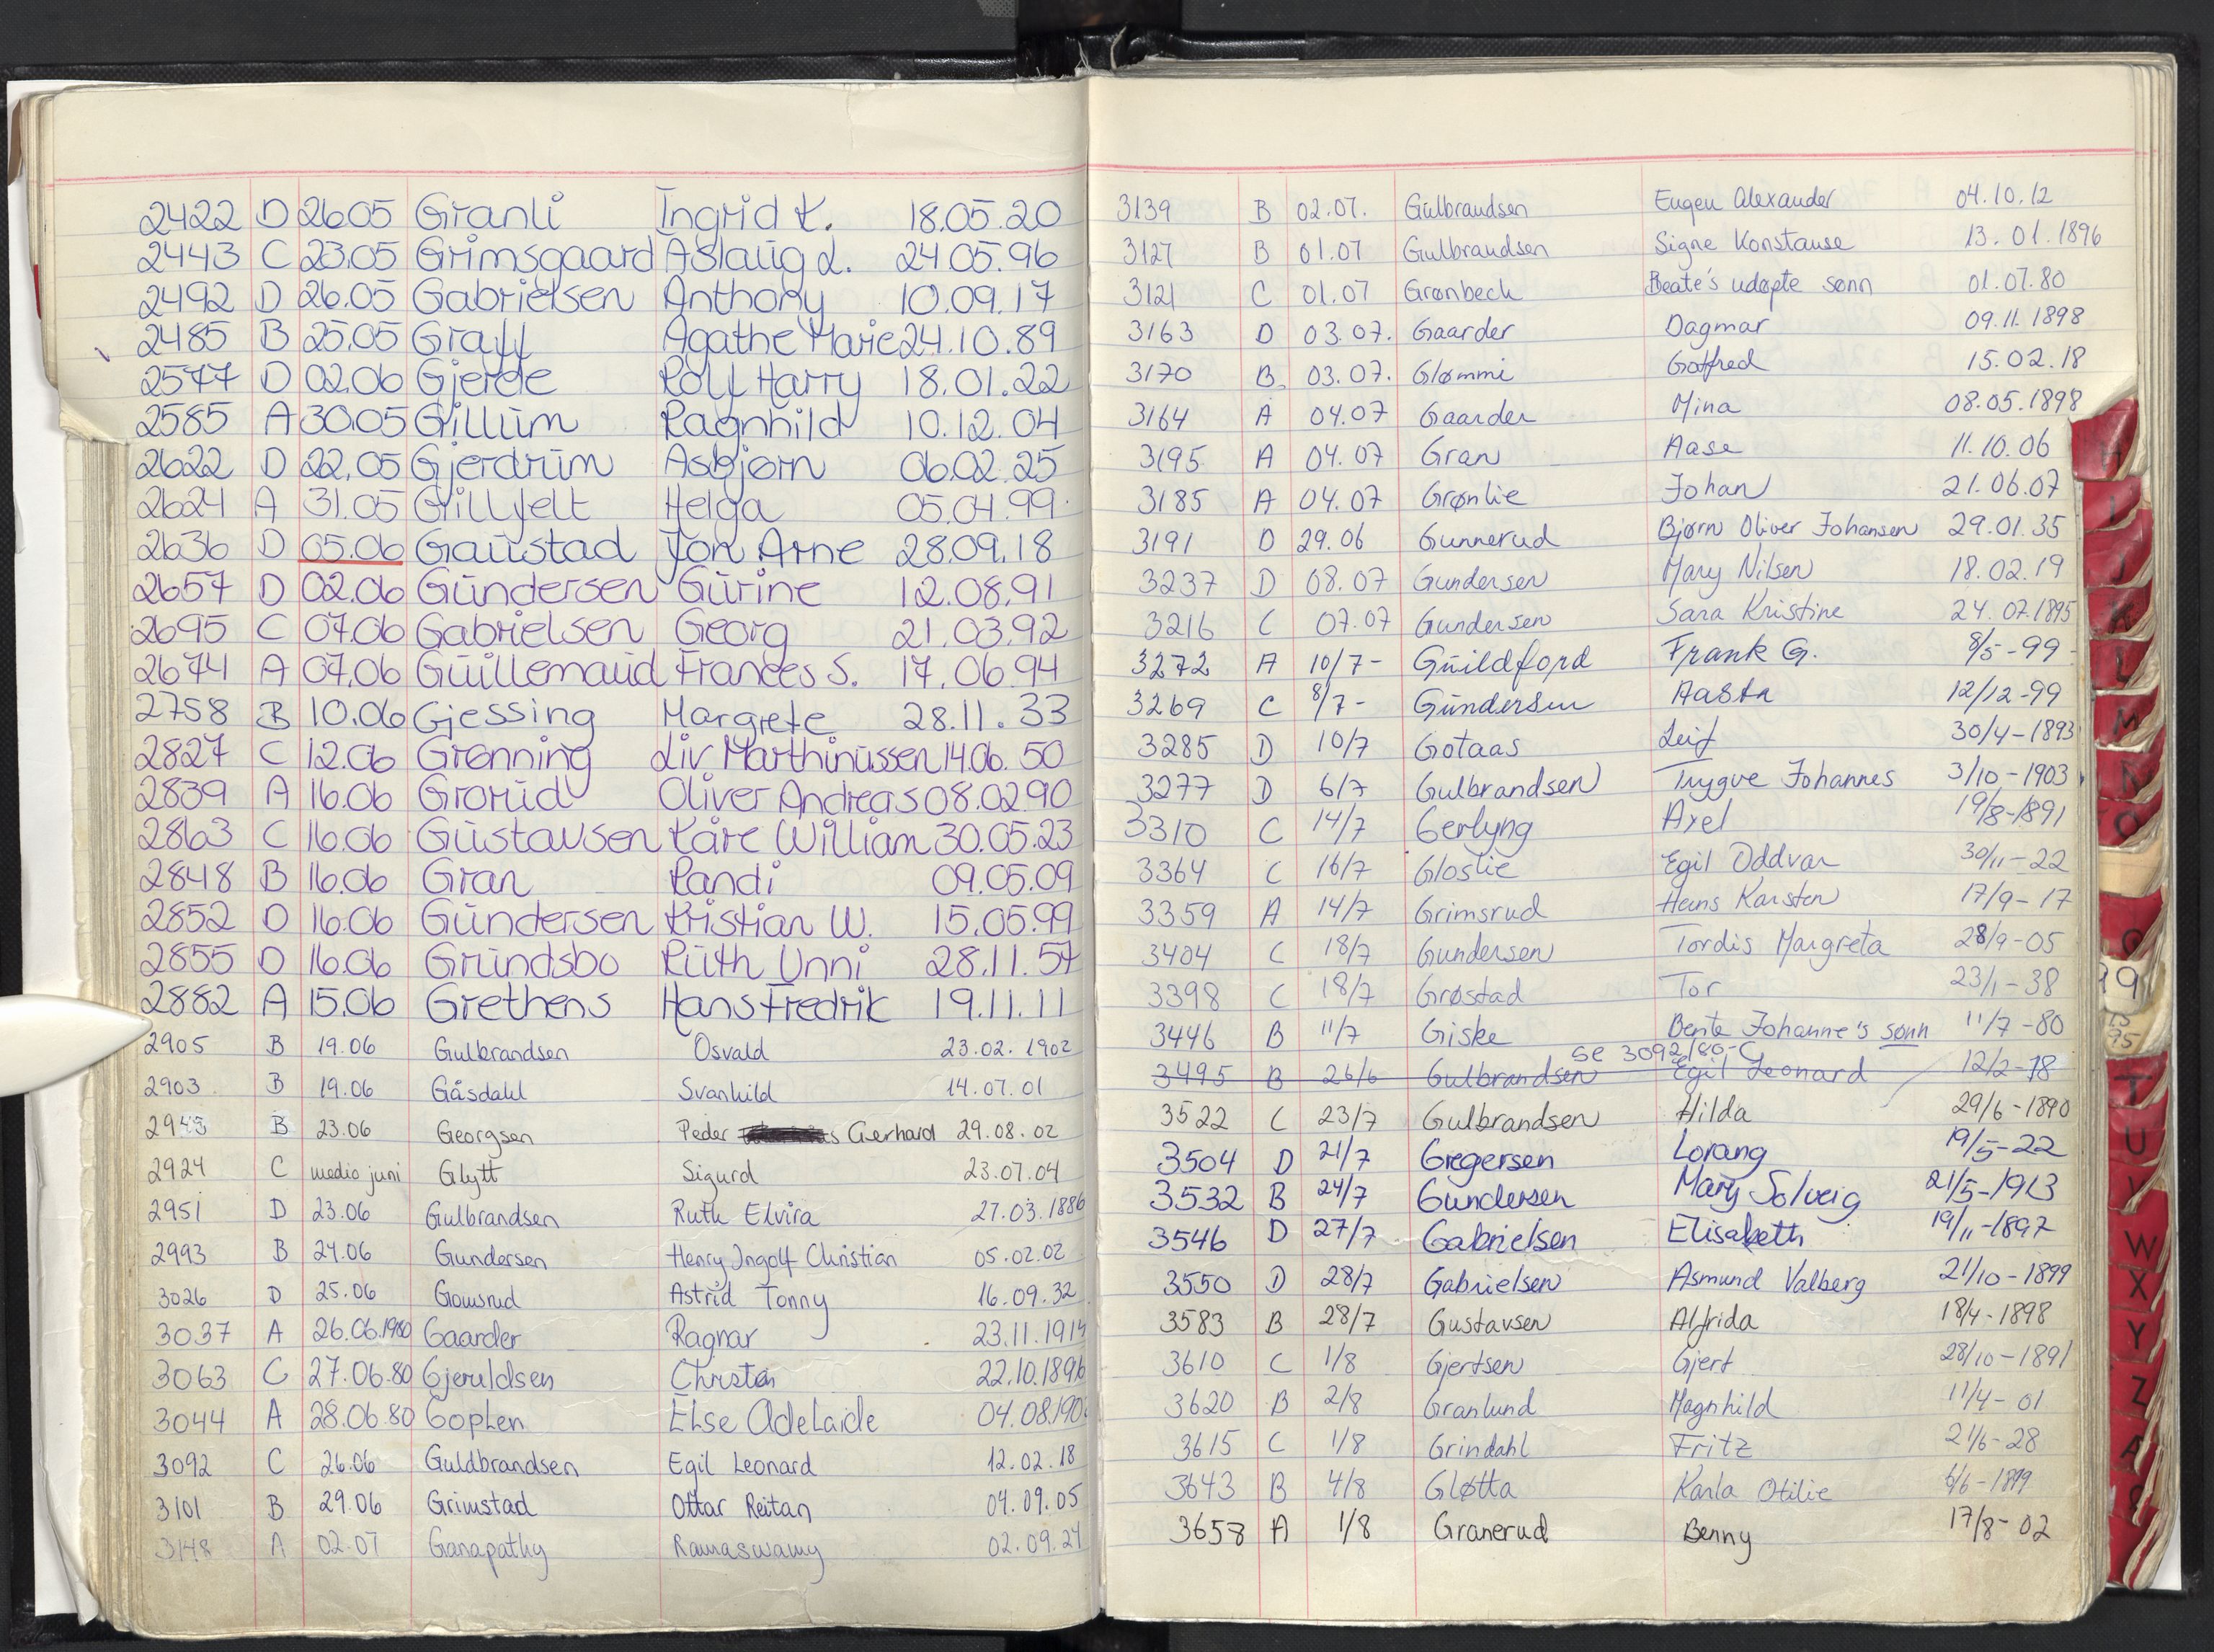 2422 D 26.05 Granli Ingrid K. 18.05.20
2443 C 23.05 Grimsgaard Aslaug L. 24.05.96
2492 D 26.05 Gabrielsen Anthony 10.09.17
2485 B 25.05 Graff Agathe Marie 24.10.89
2577 D 02.06 Gjerde Rolf Harry 18.01.22
2585 A 30.05 Gillum Ragnhild 10.12.04
2622 D 22.05 Gjerdrum Asbjørn 06.02.25
2624 A 31.05 Gillfelt Helga 05.04.99
2636 D 05.06 Gaustad Jon Arne 28.09.18
2657 D 02.06 Gundersen Gurine 12.08.91
2695 C 07.06 Gabrielsen Georg 21.03.92
2674 A 07.06 Guillemaud Frances S. 17.06.94
2758 B 10.06 Gjessing Margrete 28.11.33
2827 C 12.06 Grønning Liv Marthinussen 14.06.50
2839 A 16.06 Grorud Oliver Andreas 08.02.90
2863 C 16.06 Gustavsen Kåre William 30.05.23
2848 B 16.06 Gran Randi 09.05.09
2852 D 16.06 Gundersen Kristian W. 15.05.99
2855 D 16.06 Grundsbo Ruth Unni 28.11.57
2882 A 15.06 Grethens Hans Fredrik 19.11.11
2905 B 19.06 Gulbrandsen Osvald 23.02.1902
2903 B 19.06 Gåsdahl Svanhild 14.07.01
B 23.06 Georgsen Peder Gerhard 29.08.02
2924 C medio juni Glytt Sigurd 23.07.04
2951 D 23.06 Gulbrandsen Ruth Elvira 27.03.1886
2993 B 24.06 Gundersen Henry Ingolf Christian 05.02.02
3026 D 25.06 Gomsrud Astrid Tonny 16.09.32
3037 A 26.06.1980 Gaarder Ragnar 23.11.1914
3063 C 27.06.80 Gjeruldsen Christen 22.10.1896
3044 A 28.06.80 Gophen Else Adelaide 04.08.190
3092 C 26.06 Guldbrandsen Egil Leonard 12.02.18
3101 B 29.06 Grimstad Ottar Reitan 04.09.05
3148 A 02.07 Ganapathy Ramaswamy 02.09.27
3139 B 02.07. Gulbrandsen Eugen Alexander 04.10.12
3127 B 01.07 Gulbrandsen Signe Konstanse 13.01.1896
3121 C 01.07 Grønbech Beate's udøpte sønn 01.07.80
3163 D 03.07. Gaarder Dagmar 09.11.1898
3170 B. 03.07. Glømmi Gotfred 15.02.18
3164 A 04.07 Gaarder Mina 08.05.1898
3195 A 04.07 Gran Aase 11.10.06
3185 A 04.07 Grønlie Johan 21.06.07
3191 D 29.06 Gunnerud Bjørn Oliver Johansen 29.01.35
3237 D 08.07 Gundersen Mary Nilsen 18.02.19
3216 C 07.07 Gundersen Sara Kristine 24.07.1895
3272 A 10/7- Guildford Frank G. 8/5-99
3269 C 8/7- Gundersen Aasta 12/12-99
3285 D 10/7 Gotaas Leif 30/4-1893
3277 D 6/7 Gulbrandsen Trygve Johannes 3/10-1903
3310 C 14/7 Gerlyng Axel 19/8-1891
3364 C 16/7 Gloslie Egil Oddvar 30/11-22
3359 A 14/7 Grimsrud Hans Karsten 17/9-17
3404 C 18/7 Gundersen Tordis Margreta 28/9-05
3398 C 18/7 Grøstad Tor 23/1-38
3446 B 11/7 Giske Bente Johanne's sønn 11/7-80
se 3092/80-C
3495 B 26/6 Gulbrandsen Egil Leonard 12/2-18
3522 C 23/7 Gulbrandsen Hilda 29/6-1890
3504 D 21/7 Gregersen Lorang 19/5-22
3532 B 24/7 Gundersen Mary Solveig 21/5-1913
3546 D 27/7 Gabrielsen Elisabeth 19/11-1897
3550 D 28/7 Gabrielsen Asmund Valberg 21/10-1899
3583 B 28/7 Gustavsen Alfrida 18/4-1898
3610 C 1/8 Gjertsen Gjert 28/10-1891
3620 B 2/8 Granlund Magnhild 11/4-01
3615 C 1/8 Grindahl Fritz 21/6-28
3643 B 4/8 Gløtta Karla Otilie
3658 A 1/8 Granerud Benny 17/8-02
H
I
J
K
L
M
N
O
T
U
V
W
X
Y
Z